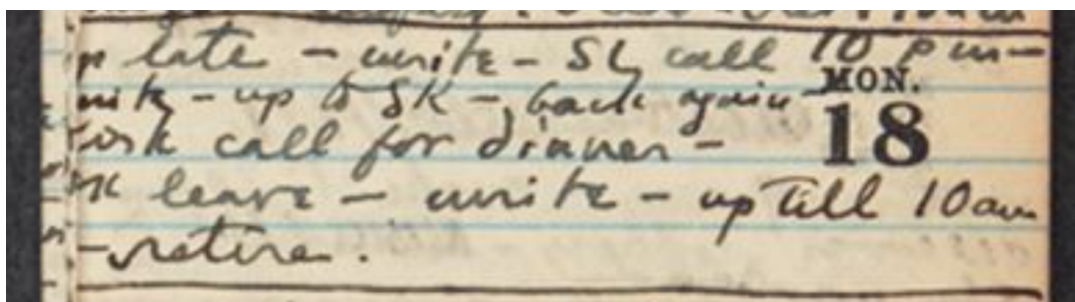 late – write – SL call 10 pm –
MON.
– up to SK – back again –
18
call for dinner –
leave – write – up till 10am
– retire .